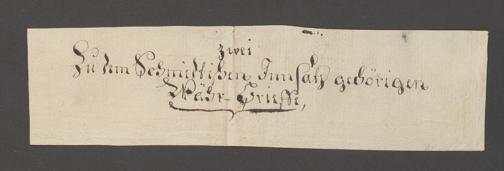 zwei
Zu dem Schmidtischen Innsatz gehörigen
Währ-Brieffe,